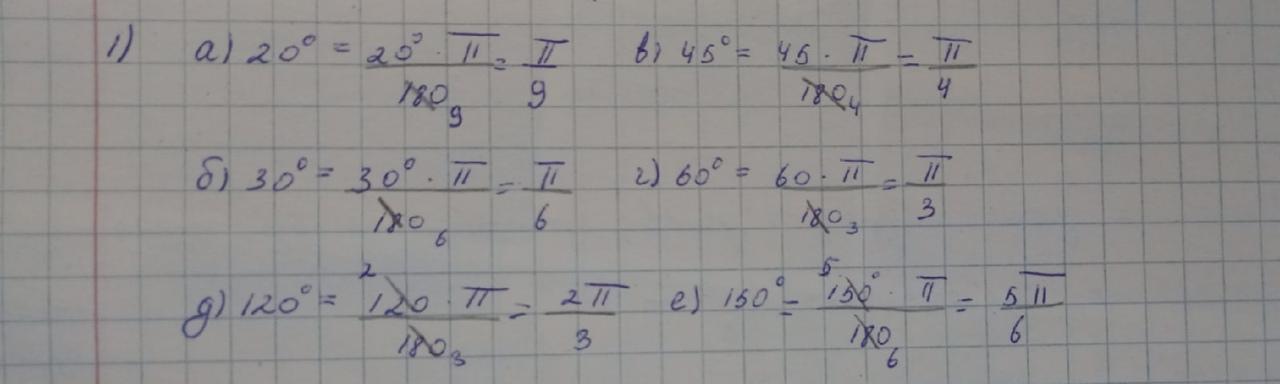 1) а) 20° = 20° · π / 180 9 = π / 9 в) 45° = 45 · π / 180 4 = π / 4
б) 30° = 30° · π / 180 6 = π / 6 г) 60° = 60 · π / 180 3 = π / 3
д) 120° = 2 120 · π / 180 3 = 2π / 3 е) 150° = 5 150° · π / 180 6 = 5π / 6